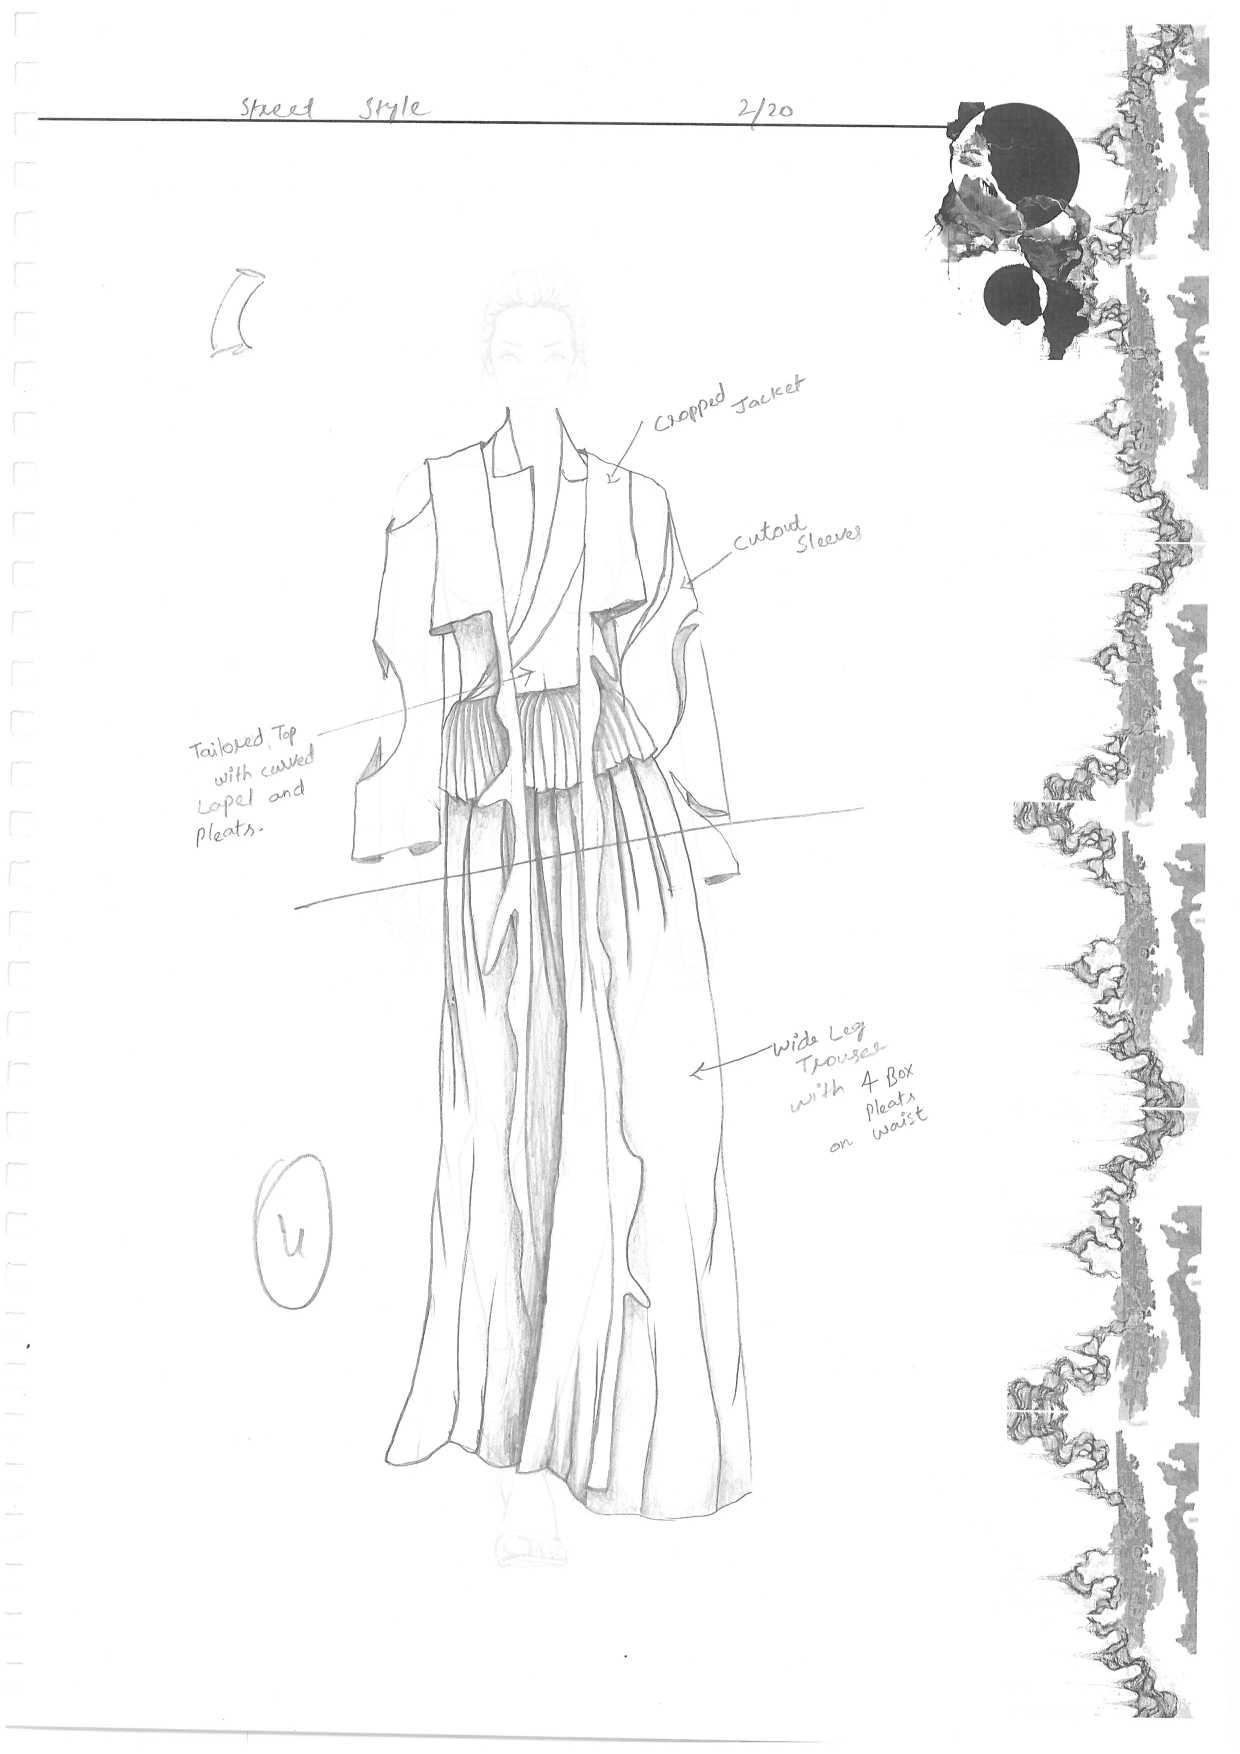 Street Style 2/20
Cropped Jacket
Cutout
Sleeves
Tailored Top
with curved
Lapel and
Pleats.
Wide Leg
Trouser
with 4 Box
Pleats
on waist